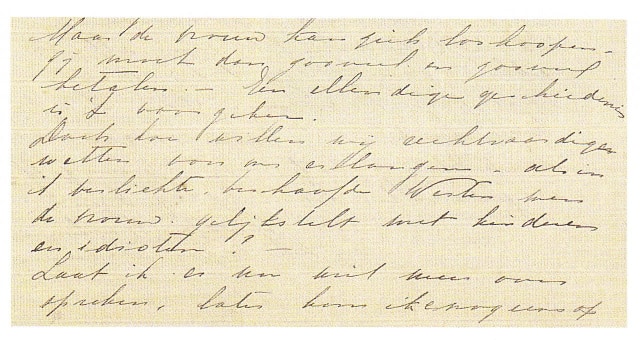 Maar de vrouw kan zich loskoopen -
zij moet dan zooveel en zooveel
betalen. - Een ellendige geschiedenis
is 't voorzeker.
Doch hoe willen wij rechtvaardiger
wetten voor ons erlangen - als in
't verlichte, beschaafde Westen men
de vrouw gelijkstelt met kinderen
en idioten!? -
Laat ik er nu niet meer over
spreken, later kom ik er nog eens op